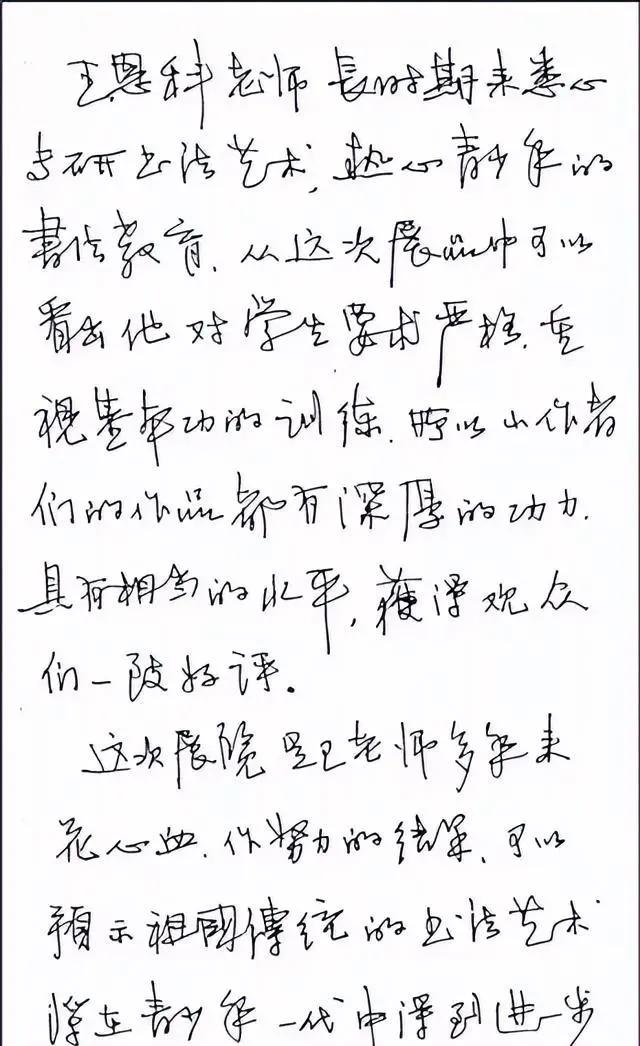 王恩科老师長时期来悉心
专研书法艺术,热心青少年的
書法教育.从这次展品中可以
看出他对学生要求严格.重
視基本功的训练.所以小作者
们的作品都有深厚的功力.
具有相当的水平,獲得观众
们一致好评。
这次展览是王老师多年来
花心血.作努力的结果.可以
預示祖國傳统的书法艺术
将在青少年一代中得到进一步